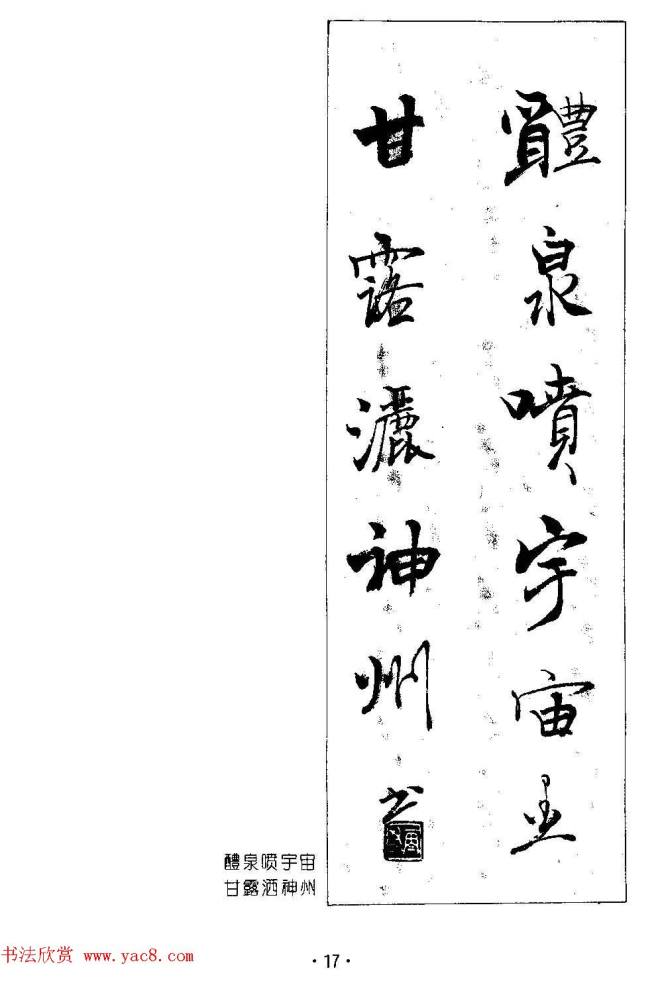 醴泉噴宇宙
甘露灑神州书
醴泉喷宇宙
甘露洒神州
书法欣赏 www.yac8.com
· 17 ·